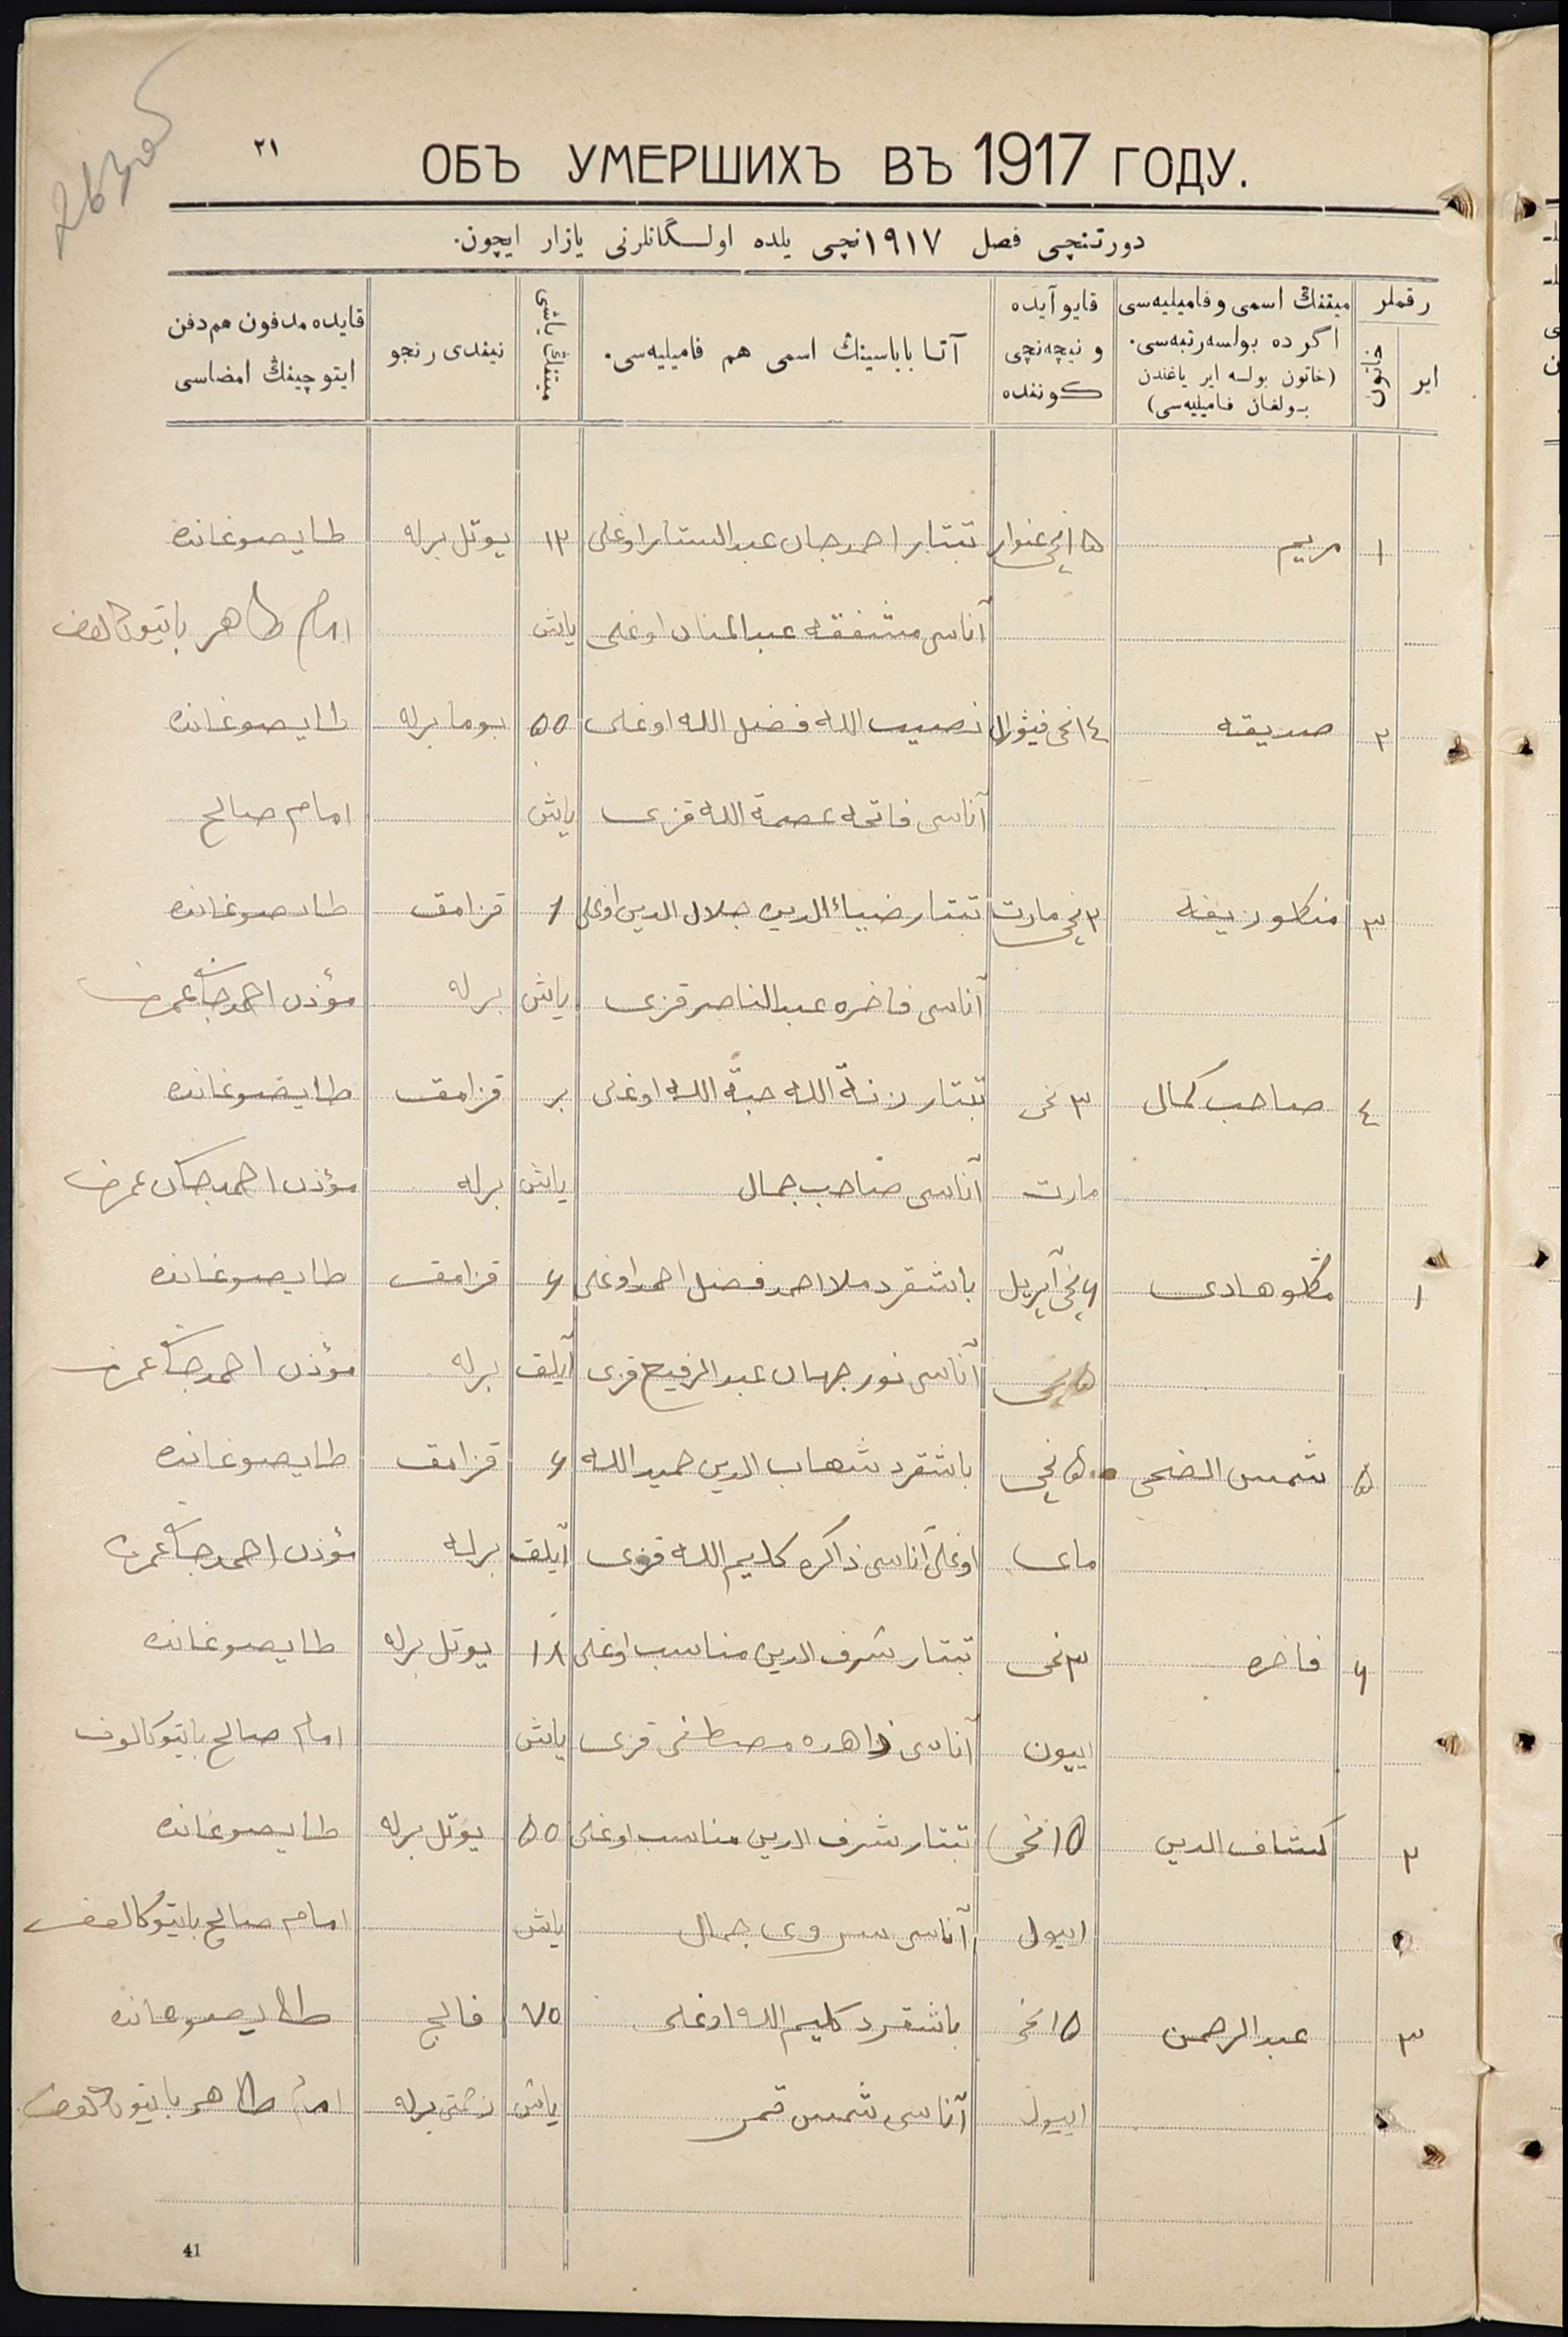 263об
٢١
ОБЪ УМЕРШИХЪ ВЪ 1917 ГОДУ.
دورتنچی فصل ١٩١٧نچی یلده اولسگانلرنی یازار ایچون.
رقملر میتنڭ اسمی وفامیلیه‌سی قایو آیده آتا باباسینڭ اسمی هم فامیلییه‌سی. میتنڭ یاشی نیندی رنجو قایده مدفون هم دفن
ایر خاتون اگر ده بولسه رتبه‌سی. و نیچه‌نچی ایتوچینڭ امضاسی
(خاتون بولسه ایر یاغندن کوننده
بولغان فامیلیه‌سی)
١ مریم ١٥نچی غنوار تبتار احمدجان عبدالستار اوغلی ١٣ یوتل برله طایصوغانده
آناسی مشفقه عبدالمنان اوغلی یاش امام طاهر باتیوکالوف
٢ صدیقه ١٤نچی فیورال نصیب الله فضل الله اوغلی ٥٥ بوما برله طایصوغانده
آناسی فاتحه عصمة الله قزی یاش امام صالح
٣ منکلوزیفه ٢نچی مارت تبتار ضیاءالدین جلال الدین اوغلی ١ قزامق طایصوغانده
آناسی فاخره عبدالناصر قزی یاش برله مؤذن احمدجان عمروف
٤ صاحب کمال ٣نچی تبتار زنة الله حبة الله اوغلی بر قزامق طایصوغانده
مارت آناسی صاحب جمال یاش برله مؤذن احمدجان عمروف
١ منکلوهادی ٤نچی آپریل باشقرد ملااحمد فضل احمد اوغلی ٦ قزامق طایصوغانده
آناسی نورجهان عبدالرفیع قزی آیلق برله مؤذن احمدجان عمروف
٥ شمس الضحی ٥نچی باشقرد شهاب الدین حمیدالله ٦ قزامق طایصوغانده
مای اوغلی آناسی ذاکره کلیم الله قزی آیلق برله مؤذن احمدجان عمروف
٦ فاخره ٣نچی تبتار شرف الدین مناسب اوغلی ١٨ یوتل برله طایصوغانده
اییون آناسی زاهده مصطفی قزی یاش امام صالح باتیوکالوف
٢ کشاف الدین ١٥نچی تبتار شرف الدین مناسب اوغلی ٥٥ یوتل برله طایصوغانده
اییول آناسی سروی جمال یاش امام صالح باتیوکالوف
٣ عبدالرحمن ١٥نچی باشقرد کلیم الله اوغلی ٧٥ فالج طایصوغانده
اییول آناسی شمس قمر یاش زحمتی برله امام طاهر باتیوکالوف
41